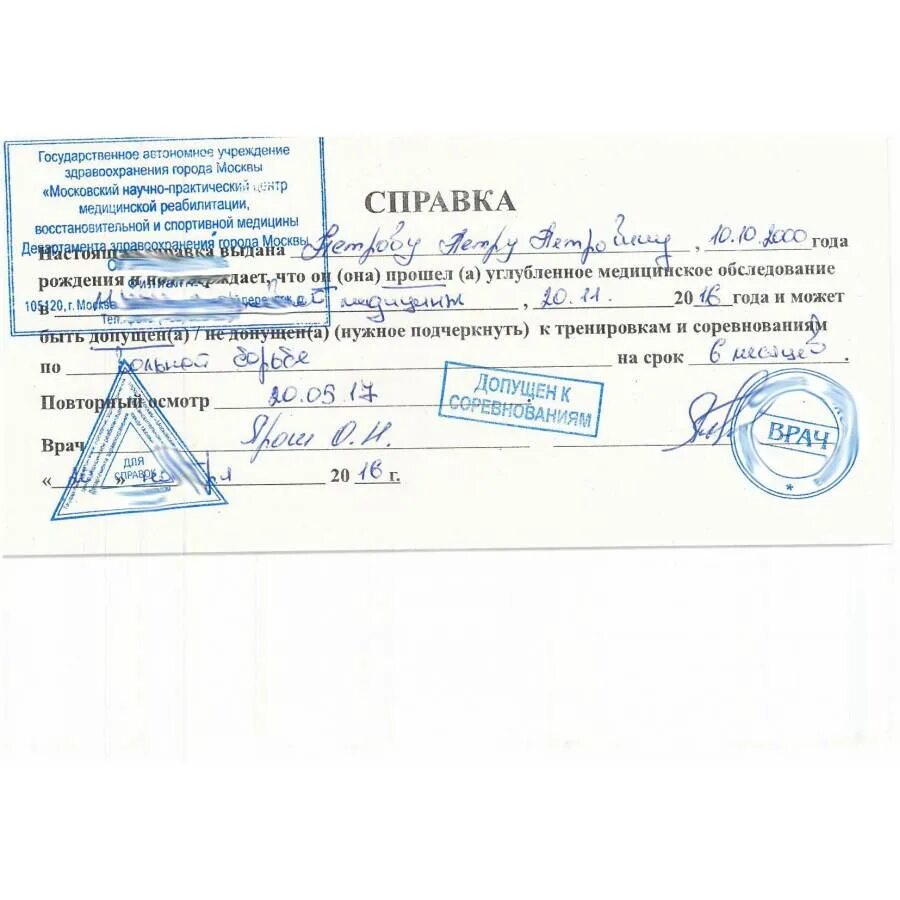 Государственное автономное учреждение
здравоохранения города Москвы
«Московский научно-практический центр
медицинской реабилитации,
восстановительной и спортивной медицины
Департамента здравоохранения города Москвы
105120, г. Москва
СПРАВКА
Настоящая справка выдана Петрову Петру Петровичу, 10.10.2000 года
рождения и подтверждает, что он (она) прошел (а) углубленное медицинское обследование
в медицины, 20.11. 2016 года и может
быть допущен(а) / не допущен(а) (нужное подчеркнуть) к тренировкам и соревнованиям
по вольной борьбе на срок 6 месяцев.
Повторный осмотр 20.05.17
ДОПУЩЕН К
СОРЕВНОВАНИЯМ
Врач Ярош О.Н.
ВРАЧ
ДЛЯ
СПРАВОК
2016 г.